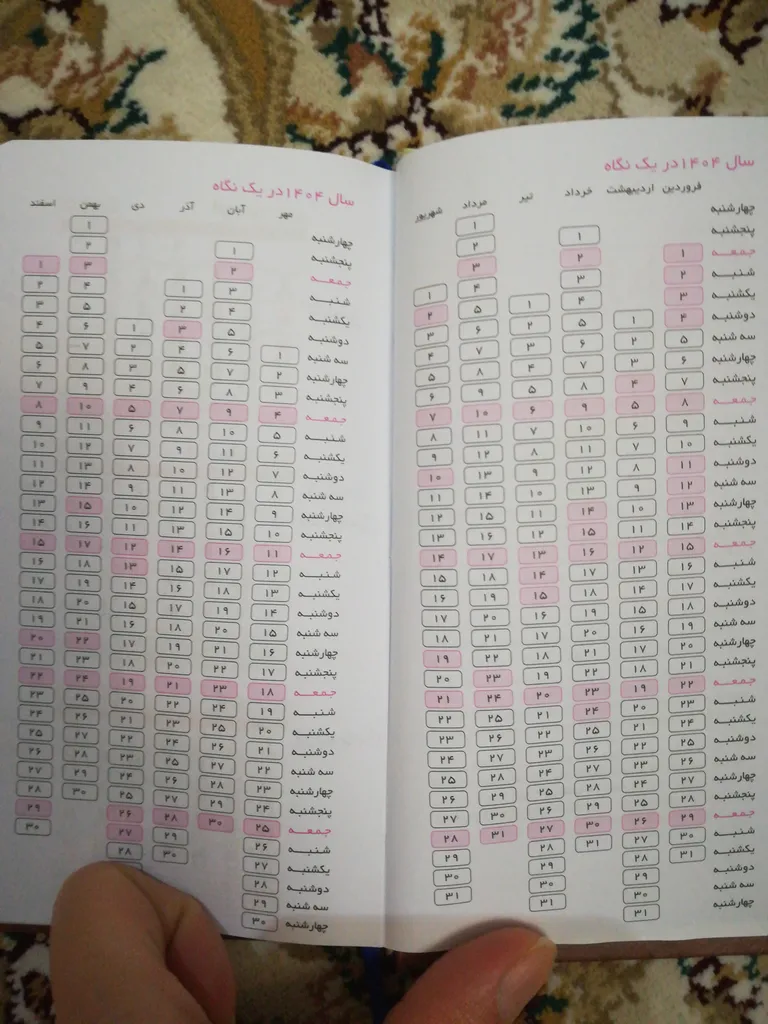 سال ۱۴۰۴ در یک نگاه
فروردین اردیبهشت خرداد تیر مرداد شهریور
چهارشنبه ۱
پنجشنبه ۱ ۲
جمعه ۱ ۲ ۳
شنبه ۲ ۳ ۴ ۱
یکشنبه ۳ ۴ ۱ ۵ ۲
دوشنبه ۴ ۱ ۵ ۲ ۶ ۳
سه شنبه ۵ ۲ ۶ ۳ ۷ ۴
چهارشنبه ۶ ۳ ۷ ۴ ۸ ۵
پنجشنبه ۷ ۴ ۸ ۵ ۹ ۶
جمعه ۸ ۵ ۹ ۶ ۱۰ ۷
شنبه ۹ ۶ ۱۰ ۷ ۱۱ ۸
یکشنبه ۱۰ ۷ ۱۱ ۸ ۱۲ ۹
دوشنبه ۱۱ ۸ ۱۲ ۹ ۱۳ ۱۰
سه شنبه ۱۲ ۹ ۱۳ ۱۰ ۱۴ ۱۱
چهارشنبه ۱۳ ۱۰ ۱۴ ۱۱ ۱۵ ۱۲
پنجشنبه ۱۴ ۱۱ ۱۵ ۱۲ ۱۶ ۱۳
جمعه ۱۵ ۱۲ ۱۶ ۱۳ ۱۷ ۱۴
شنبه ۱۶ ۱۳ ۱۷ ۱۴ ۱۸ ۱۵
یکشنبه ۱۷ ۱۴ ۱۸ ۱۵ ۱۹ ۱۶
دوشنبه ۱۸ ۱۵ ۱۹ ۱۶ ۲۰ ۱۷
سه شنبه ۱۹ ۱۶ ۲۰ ۱۷ ۲۱ ۱۸
چهارشنبه ۲۰ ۱۷ ۲۱ ۱۸ ۲۲ ۱۹
پنجشنبه ۲۱ ۱۸ ۲۲ ۱۹ ۲۳ ۲۰
جمعه ۲۲ ۱۹ ۲۳ ۲۰ ۲۴ ۲۱
شنبه ۲۳ ۲۰ ۲۴ ۲۱ ۲۵ ۲۲
یکشنبه ۲۴ ۲۱ ۲۵ ۲۲ ۲۶ ۲۳
دوشنبه ۲۵ ۲۲ ۲۶ ۲۳ ۲۷ ۲۴
سه شنبه ۲۶ ۲۳ ۲۷ ۲۴ ۲۸ ۲۵
چهارشنبه ۲۷ ۲۴ ۲۸ ۲۵ ۲۹ ۲۶
پنجشنبه ۲۸ ۲۵ ۲۹ ۲۶ ۳۰ ۲۷
جمعه ۲۹ ۲۶ ۳۰ ۲۷ ۳۱ ۲۸
شنبه ۳۰ ۲۷ ۳۱ ۲۸ ۲۹
یکشنبه ۳۱ ۲۸ ۲۹ ۳۰
دوشنبه ۲۹ ۳۰ ۳۱
سه شنبه ۳۰ ۳۱
چهارشنبه ۳۱
سال ۱۴۰۴ در یک نگاه
مهر آبان آذر دی بهمن اسفند
چهارشنبه ۱
پنجشنبه ۱ ۲
جمعه ۲ ۳ ۱
شنبه ۳ ۱ ۴ ۲
یکشنبه ۴ ۲ ۵ ۳
دوشنبه ۵ ۳ ۱ ۶ ۴
سه شنبه ۱ ۶ ۴ ۲ ۷ ۵
چهارشنبه ۲ ۷ ۵ ۳ ۸ ۶
پنجشنبه ۳ ۸ ۶ ۴ ۹ ۷
جمعه ۴ ۹ ۷ ۵ ۱۰ ۸
شنبه ۵ ۱۰ ۸ ۶ ۱۱ ۹
یکشنبه ۶ ۱۱ ۹ ۷ ۱۲ ۱۰
دوشنبه ۷ ۱۲ ۱۰ ۸ ۱۳ ۱۱
سه شنبه ۸ ۱۳ ۱۱ ۹ ۱۴ ۱۲
چهارشنبه ۹ ۱۴ ۱۲ ۱۰ ۱۵ ۱۳
پنجشنبه ۱۰ ۱۵ ۱۳ ۱۱ ۱۶ ۱۴
جمعه ۱۱ ۱۶ ۱۴ ۱۲ ۱۷ ۱۵
شنبه ۱۲ ۱۷ ۱۵ ۱۳ ۱۸ ۱۶
یکشنبه ۱۳ ۱۸ ۱۶ ۱۴ ۱۹ ۱۷
دوشنبه ۱۴ ۱۹ ۱۷ ۱۵ ۲۰ ۱۸
سه شنبه ۱۵ ۲۰ ۱۸ ۱۶ ۲۱ ۱۹
چهارشنبه ۱۶ ۲۱ ۱۹ ۱۷ ۲۲ ۲۰
پنجشنبه ۱۷ ۲۲ ۲۰ ۱۸ ۲۳ ۲۱
جمعه ۱۸ ۲۳ ۲۱ ۱۹ ۲۴ ۲۲
شنبه ۱۹ ۲۴ ۲۲ ۲۰ ۲۵ ۲۳
یکشنبه ۲۰ ۲۵ ۲۳ ۲۱ ۲۶ ۲۴
دوشنبه ۲۱ ۲۶ ۲۴ ۲۲ ۲۷ ۲۵
سه شنبه ۲۲ ۲۷ ۲۵ ۲۳ ۲۸ ۲۶
چهارشنبه ۲۳ ۲۸ ۲۶ ۲۴ ۲۹ ۲۷
پنجشنبه ۲۴ ۲۹ ۲۷ ۲۵ ۳۰ ۲۸
جمعه ۲۵ ۳۰ ۲۸ ۲۶ ۲۹
شنبه ۲۶ ۲۹ ۲۷ ۳۰
یکشنبه ۲۷ ۳۰ ۲۸
دوشنبه ۲�8
سه شنبه ۲۹
چهارشنبه ۳۰